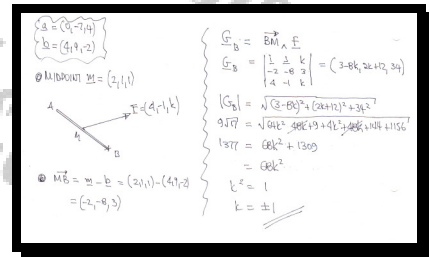 a = (0,-7,4)
b = (4,9,-2)
MIDPOINT m = (2,1,1)
A
F=(4,-1,k)
M
B
MB = m - b = (2,1,1)-(4,9,-2)
= (-2,-8,3)
G_B = BM ∧ F
G_B = | i j k |
| -2 -8 3 |
| 4 -1 k |
= (3-8k, 2k+12, 34)
|G_B| = √(3-8k)²+(2k+12)²+34²
9√17 = √64k²-48k+9+4k²+48k+144+1156
1377 = 68k² + 1309
= 68k²
k² = 1
k = ±1